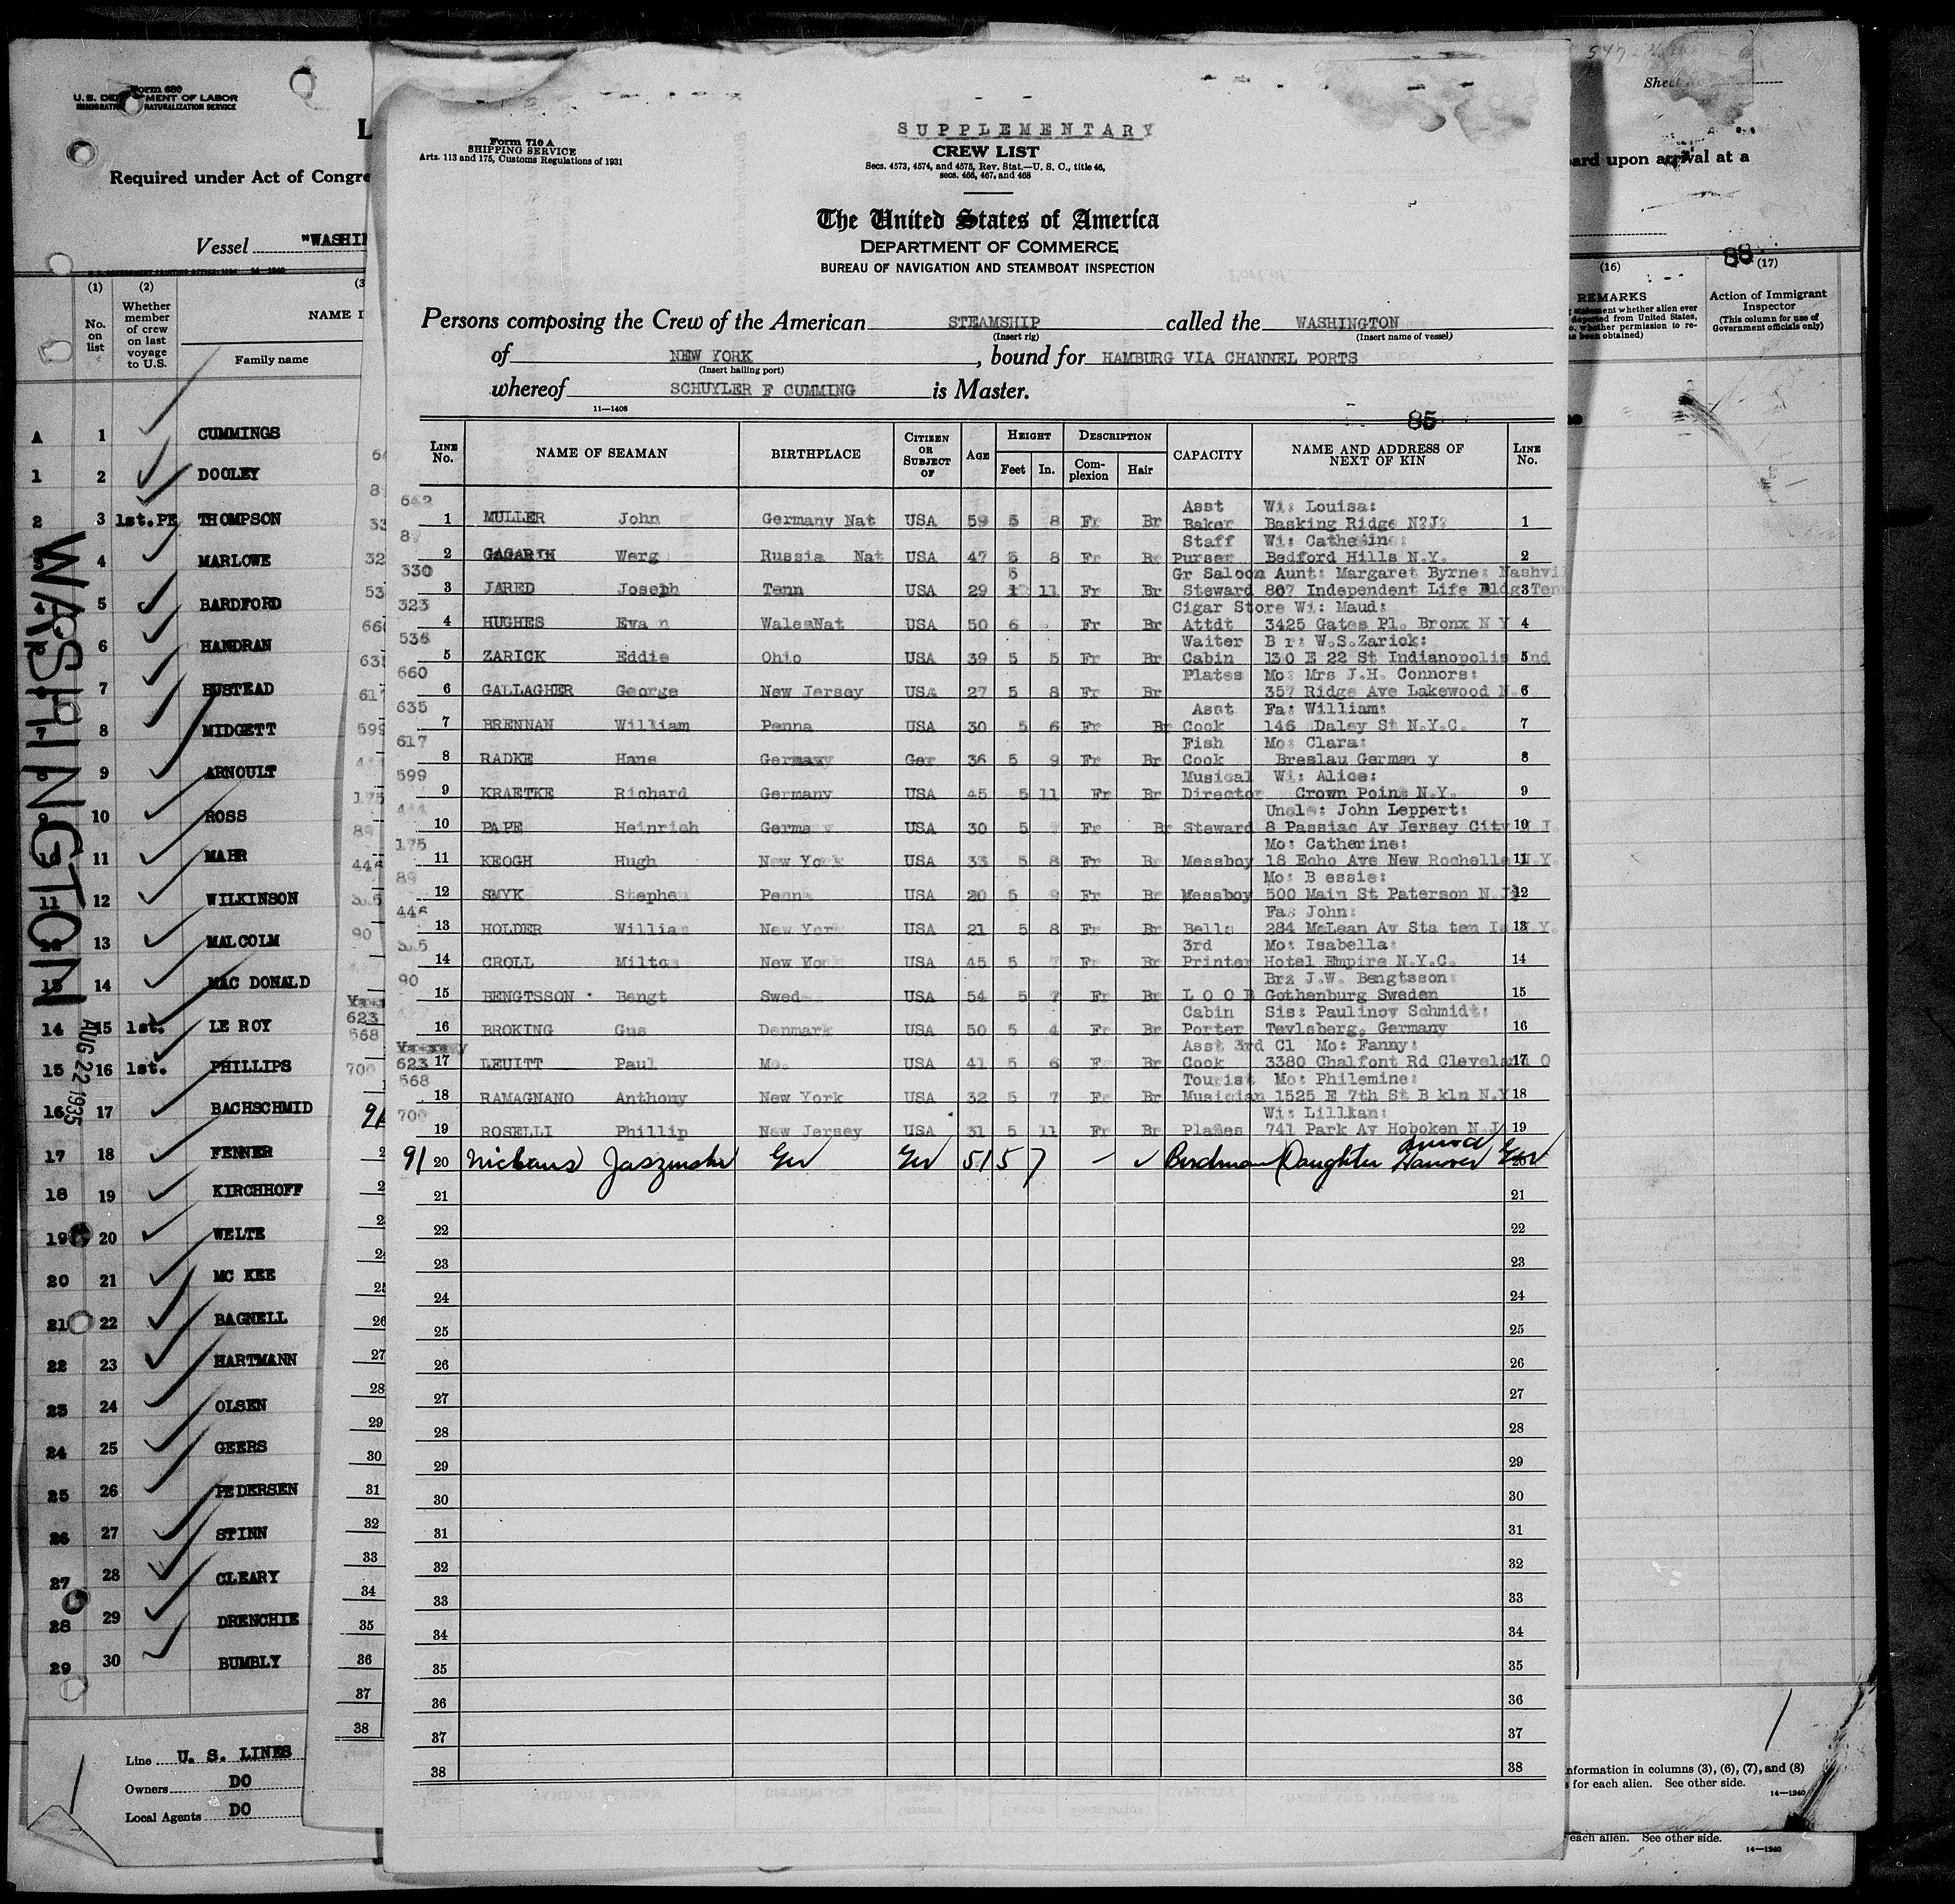 Form 680
U. S. DEPARTMENT OF LABOR
IMMIGRATION NATURALIZATION SERVICE
Required under Act of Congre
Vessel "WASHIN
(1) (2) (3
No. on list
Whether member of crew on last voyage to U.S.
NAME I
Family name
A 1 CUMMINGS
1 2 DOOLEY
2 3 1st. PE THOMPSON
3 4 MARLOWE
4 5 BARDFORD
6 HANDRAN
7 BUSTEAD
7 8 MIDGETT
9 ARNOULT
10 ROSS
10 11 MAHR
11 12 WILKINSON
12 13 MALCOLM
13 14 MAC DONALD
14 15 1st. LE ROY
15 16 1st. PHILLIPS
16 17 BACHSCHMID
17 18 FENNER
18 19 KIRCHHOFF
19 20 WELTE
20 21 MC KEE
21 22 BAGNELL
22 23 HARTMANN
23 24 OLSEN
24 25 GEERS
25 26 PEDERSEN
26 27 STINN
27 28 CLEARY
28 29 DRENCHIE
29 30 BUMBLY
WASHINGTON
AUG 22 1935
Line U. S. LINES
Owners DO
Local Agents DO
SUPPLEMENTARY
Form 710 A
SHIPPING SERVICE
Arts. 113 and 175, Customs Regulations of 1931
CREW LIST
Secs. 4573, 4574, and 4575, Rev. Stat.—U. S. C., title 46,
secs. 466, 467, and 468
The United States of America
DEPARTMENT OF COMMERCE
BUREAU OF NAVIGATION AND STEAMBOAT INSPECTION
Persons composing the Crew of the American STEAMSHIP called the WASHINGTON
(Insert rig) (Insert name of vessel)
of NEW YORK, bound for HAMBURG VIA CHANNEL PORTS
(Insert hailing port)
whereof SCHUYLER F CUMMING is Master.
11—1408
85
LINE No. NAME OF SEAMAN BIRTHPLACE CITIZEN OR SUBJECT OF AGE HEIGHT Feet In. DESCRIPTION Complexion Hair CAPACITY NAME AND ADDRESS OF NEXT OF KIN LINE No.
642 Asst Wi: Louisa:
1 MULLER John Germany Nat USA 59 5 8 Fr Br Baker Basking Ridge N?J? 1
87 Staff Wi: Catherine:
2 GAGARIN Werg Russia Nat USA 47 5 8 Fr Br Purser Bedford Hills N.Y. 2
330 5 Gr Saloon Aunt: Margaret Byrne: Nashvi
3 JARED Joseph Tenn USA 29 11 Fr Br Steward 807 Independent Life Bldg Tenn 3
323 Cigar Store Wi: Maud:
4 HUGHES Eva n WalesNat USA 50 6 Fr Br Attdt 3425 Gates Pl. Bronx N Y 4
536 Waiter B r: W.S.Zarick:
5 ZARICK Eddie Ohio USA 39 5 5 Fr Br Cabin 130 E 22 St Indianopolis Ind 5
660 Plates Mo: Mrs J.H. Connors:
6 GALLAGHER George New Jersey USA 27 5 8 Fr Br 357 Ridge Ave Lakewood N. 6
635 Asst Fa: William:
7 BRENNAN William Penna USA 30 5 6 Fr Br Cook 146 Daley St N.Y.C. 7
617 Fish Mo: Clara:
8 RADKE Hans Germany Ger 36 5 9 Fr Br Cook Breslau German y 8
599 Musical Wi: Alice:
9 KRAETKE Richard Germany USA 45 5 11 Fr Br Director Crown Point N.Y. 9
444 Uncle: John Leppert:
10 PAPE Heinrich Germa y USA 30 5 7 Fr Br Steward 8 Passiac Av Jersey City 10
175 Mo: Catherine:
11 KEOGH Hugh New York USA 33 5 8 Fr Br Messboy 18 Echo Ave New Rochelle N.Y. 11
89 Mo: B essie:
12 SMYK Stephen Penna USA 20 5 9 Fr Br Messboy 500 Main St Paterson N.J. 12
446 Fa: John:
13 HOLDER William New York USA 21 5 8 Fr Br Bells 284 McLean Av Sta ten Is N.Y. 13
3rd Mo: Isabella:
14 CROLL Milto New York USA 45 5 7 Fr Br Printer Hotel Empire N.Y.C. 14
90 Br: J.W. Bengtsson:
15 BENGTSSON Bengt Swed USA 54 5 7 Fr Br L O O B Gothenburg Sweden 15
Cabin Sis: Paulinov Schmidt:
16 BROKING Gus Denmark USA 50 5 4 Fr Br Porter Tevlsberg, Germany 16
Asst 3rd Cl Mo: Fanny:
623 17 LEUITT Paul Mo. USA 41 5 6 Fr Br Cook 3380 Chalfont Rd Cleveland O 17
568 Tourist Mo: Philemine:
18 RAMAGNANO Anthony New York USA 32 5 7 Fr Br Musician 1525 E 7th St B kln N.Y 18
700 Wi: Lillian:
19 ROSELLI Phillip New Jersey USA 31 5 11 Fr Br Plates 741 Park Av Hoboken N.J 19
91 20 Nickaus Jaszinski Ger Ger 51 5 7 — Birdman Daughter Hanover Ger
21 21
22 22
23 23
24 24
25 25
26 26
27 27
28 28
29 29
30 30
31 31
32 32
33 33
34 34
35 35
36 36
37 37
38 38
Sheet
oard upon arrival at a
88
(16) (17)
REMARKS
statement whether alien ever
deported from United States,
whether permission to re-
been obtained)
Action of Immigrant
Inspector
(This column for use of
Government officials only)
nformation in columns (3), (6), (7), and (8)
for each alien. See other side.
14—1240
each alien. See other side.
14—1240